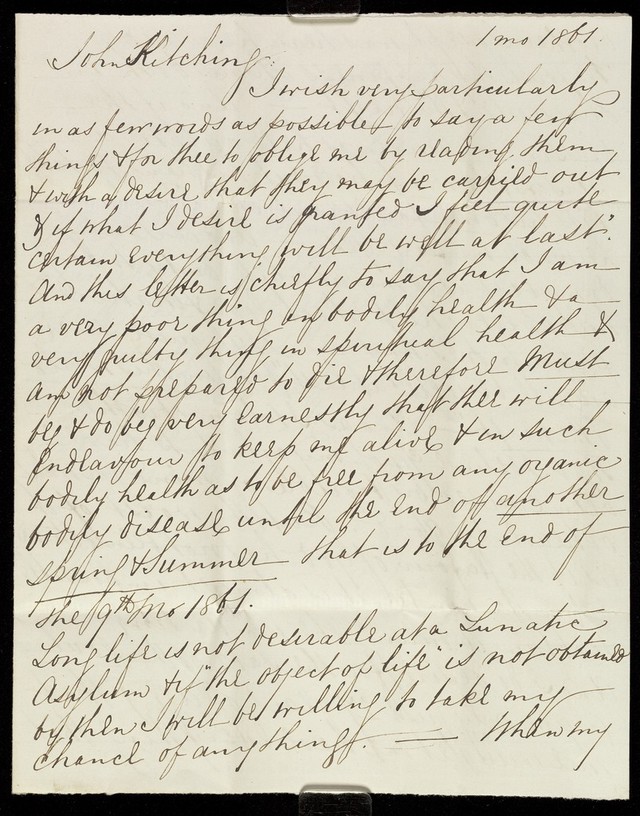 1 mo 1861.
John Kitching.
I wish very particularly
in as few words as possible to say a few
things & for thee to oblige me by reading them
& with a desire that they may be carried out
& if what I desire is granted I feel quite
certain everything will be well at last.
And this letter is chiefly to say that I am
a very poor thing in bodily health & a
very guilty thing in spiritual health &
am not prepared to die & therefore Must
beg & do beg very earnestly that thee will
Endeavour to keep me alive & in such
bodily health as to be free from any organic
bodily disease until the end of another
spring & Summer that is to the end of
the 9th Mo 1861.
Long life is not desirable at a Lunatic
Asylum & if "the object of life" is not obtained
by then I will be willing to take my
chance of anything. — When my